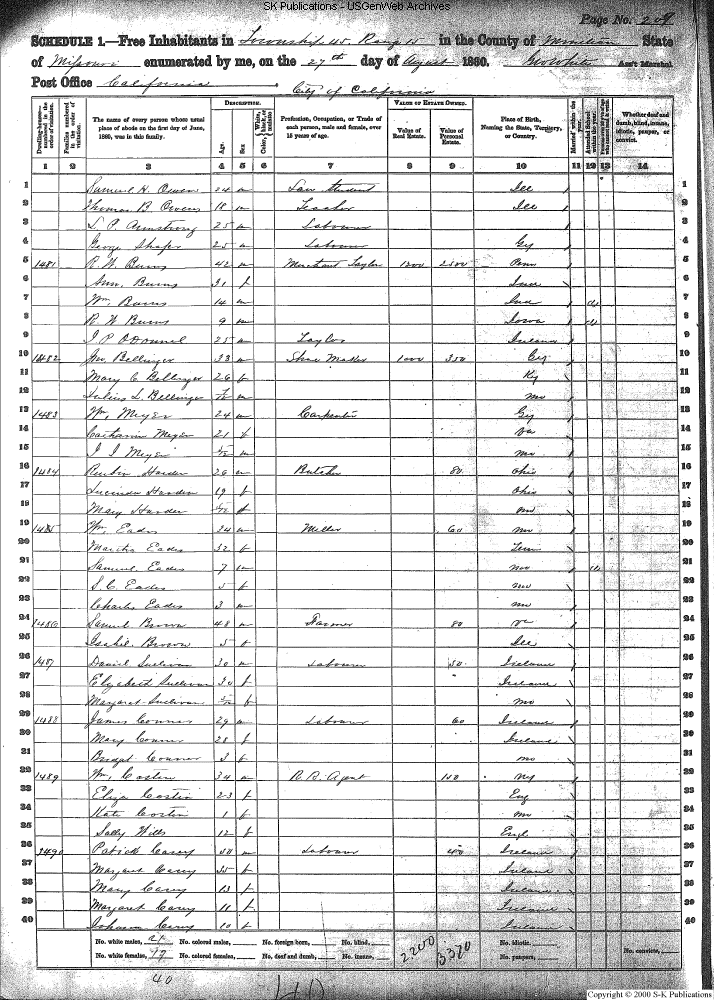 SK Publications - USGenWeb Archives
Page No. 209
SCHEDULE 1.—Free Inhabitants in Township 45, Rang 15 in the County of Moniteau State
of Missouri enumerated by me, on the 27th day of August 1860. Ass't Marshal
Post Office California City of California
DESCRIPTION. VALUE OF ESTATE OWNED.
Dwelling-houses—numbered in the order of visitation. Families numbered in the order of visitation. The name of every person whose usual place of abode on the first day of June, 1860, was in this family. Age. Sex Color, White, black, or mulatto Profession, Occupation, or Trade of each person, male and female, over 15 years of age. Value of Real Estate. Value of Personal Estate. Place of Birth, Naming the State, Territory, or Country. Married within the year. Attended School within the year. Whether deaf and dumb, blind, insane, idiotic, pauper, or convict.
1 2 3 4 5 6 7 8 9 10 11 12 13 14
1 Samuel H. Owens 24 m Law Student Ill / 1
2 Thomas B. Owens 18 m Teacher Ill / 2
3 L. P. Armstrong 25 m Labourer 3
4 George Shafer 25 m Labourer Gy 4
5 1481 R. W. Burns 42 m Merchant Taylor 1200 2500 Penn 5
6 Ann. Burns 31 f Ind 6
7 Wm. Burns 14 m Ind 7
8 R. W Burns 9 m Iowa 8
9 J P ODonnel 25 m Taylor Ireland 9
10 1482 Jno. Bellinger 33 m Shoe Maker 1000 350 Gy 10
11 Mary C Bellinger 26 f Ky 11
12 Julius L. Bellinger m mo 12
13 1483 Wm. Meyer 24 m Carpenter Gy 13
14 Catharine Meyer 21 f Va 14
15 J J Meyer m mo 15
16 1484 Reubin Harder 26 m Butcher 80 Ohio 16
17 Lucinda Harder 19 f Ohio 17
18 Mary Harder f mo 18
19 1485 Wm. Eades 34 m Miller 60 mo 19
20 Martha Eades 32 f Tenn 20
21 Samuel Eades 7 m mo 21
22 S. C. Eades 5 f mo 22
23 Charles Eades 3 m mo 23
24 1486 Samuel Brown 48 m Farmer 80 Va 24
25 Isabel. Brown 5 f Ill 25
26 1487 Daniel Sullivan 30 m Labourer 50 Ireland 26
27 Elizabeth Sullivan 30 f Ireland 27
28 Margaret Sullivan f mo 28
29 1488 James Conner 29 m Labourer 60 Ireland 29
30 Mary Conner 28 f Ireland 30
31 Bridget Conner 3 f mo 31
32 1489 Wm. Costin 34 m R. R. Agent 100 NY 32
33 Eliza Costin 23 f Eng 33
34 Kate Costin 1 f mo 34
35 Sally Wills 12 f Engl 35
36 1490 Patrick Carey 50 m Labourer 40 Ireland 36
37 Margaret Carey 35 f Ireland 37
38 Mary Carey 13 f Ireland 38
39 Margaret Carey 11 f Ireland 39
40 Johanna Carey 10 f Ireland 40
No. white males, 21 No. colored males, No. foreign born, No. blind, 2200 3370 No. idiotic,
No. white females, 19 No. colored females, No. deaf and dumb, No. insane, No. paupers, No. convicts,
40
Copyright © 2000 S-K Publications